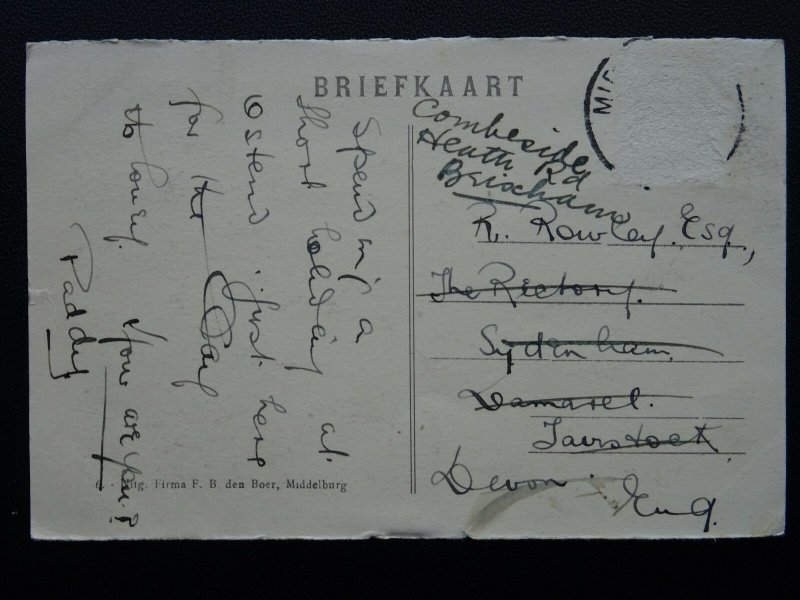 BRIEFKAART
MID
Spending a
short holiday at
Ostend. Just here
for the day
How are you?
Paddy
Combeside
Heath Rd
Brixham
R. Rowley Esq,
The Rectory.
Sydenham
Damarel.
Tavistock
Devon. Eng.
Uitg. Firma F. B. den Boer, Middelburg